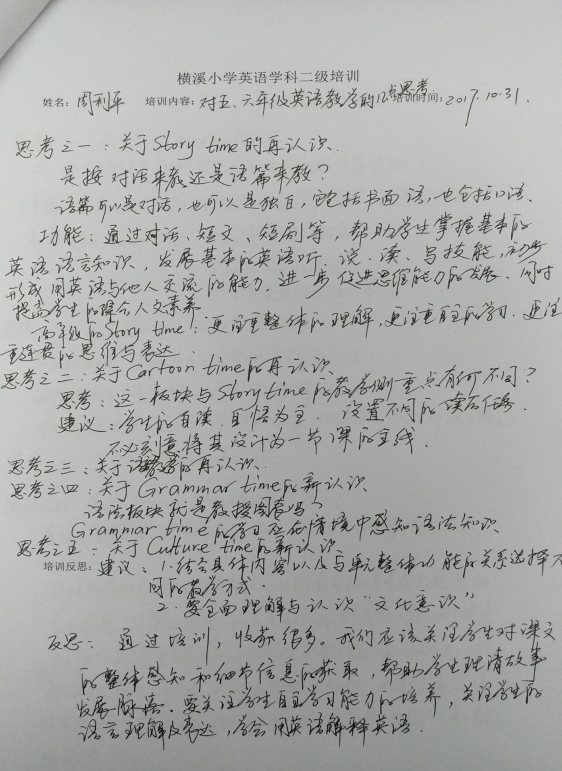 横溪小学英语学科二级培训
姓名：周利平 培训内容：对五、六年级英语教学的几点思考 培训时间：2017.10.31.
思考之一：关于Story time的再认识.
是按对话来教还是语篇来教？
语篇可以是对话，也可以是独白，它包括书面语，也包括口语.
功能：通过对话、短文、短剧等，帮助学生掌握基本的
英语语言知识，发展基本的英语听、说、读、写技能，初步
形成用英语与他人交流的能力，进一步促进思维能力的发展、同时
提高学生的综合人文素养.
高年级的Story time：更注重整体的理解，更注重自主的学习、更注
重连贯的思维与表达.
思考之二：关于Cartoon time的再认识.
思考：这一板块与Story time的教学侧重点有何不同？
建议：学生的自读、自悟为主. 设置不同的读后任务.
不必刻意将其设计为一节课的主线.
思考之三：关于语音教学的再认识.
思考之四：关于Grammar time的新认识
语法板块就是教授图表吗？
Grammar time的学习应在情境中感知语法知识
思考之五：关于Culture time的新认识
培训反思：建议：1.结合具体内容以及与单元整体功能的关系选择不
同的教学方式.
2.要全面理解与认识“文化意识”
反思：通过培训，收获很多。我们应该关注学生对课文
的整体感知和细节信息的获取，帮助学生理清故事
发展脉络。要关注学生自主学习能力的培养，关注学生的
语言理解及表达，学会用英语解释英语.